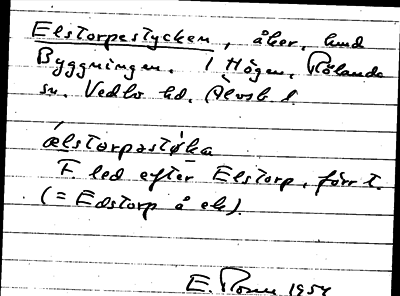 Elstorpestycken, åker, hmd
Byggningen. 1 Högen, Rölanda
sn. Vedbo hd. Älvsb l.
ælstɔrpəstʂka
F. led efter Elstorp, förr t.
(= Edstorp å ek).
E. 1954